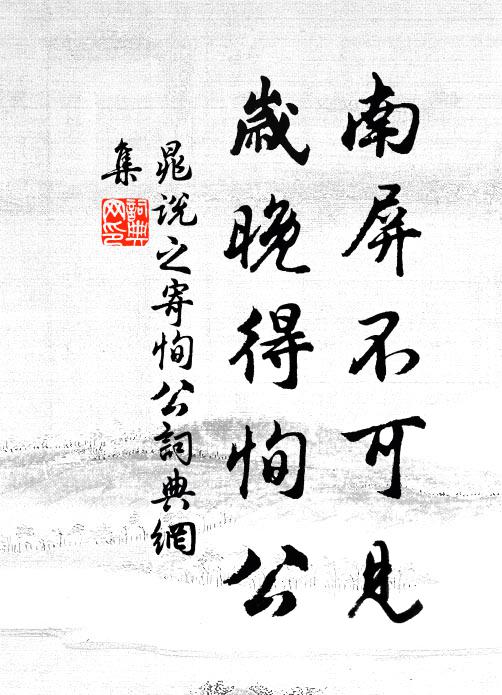 南屏不可見
歲晚得恂公
晁說之寄恂公詞典網
集
詞典網印